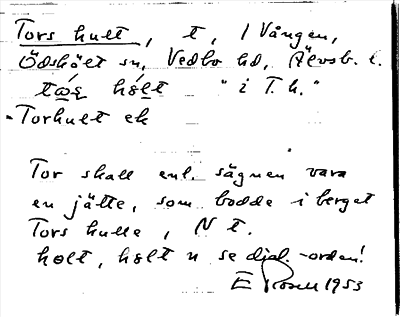 Tors hult, t, 1 Vången,
Ödskölt sn, Vedbo hd, Älvsb. l.
hólt "i T.h."
- Torhult ek
Tor skall enl. sägnen vara
en jätte, som bodde i berget
Tors hulle, N t.
holt, hålt n se djal.-orden!
E Rosell 1953